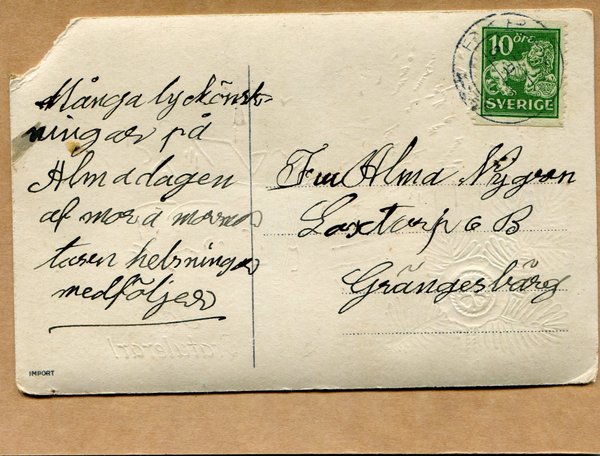 Många lyckönsk-
ningar på
Almadagen
af mor &
helsningar
medföljer
10 öre
SVERIGE
Fru Alma Nygren
Laxtorp B
Grängesbärg
IMPORT
Gratulerar!